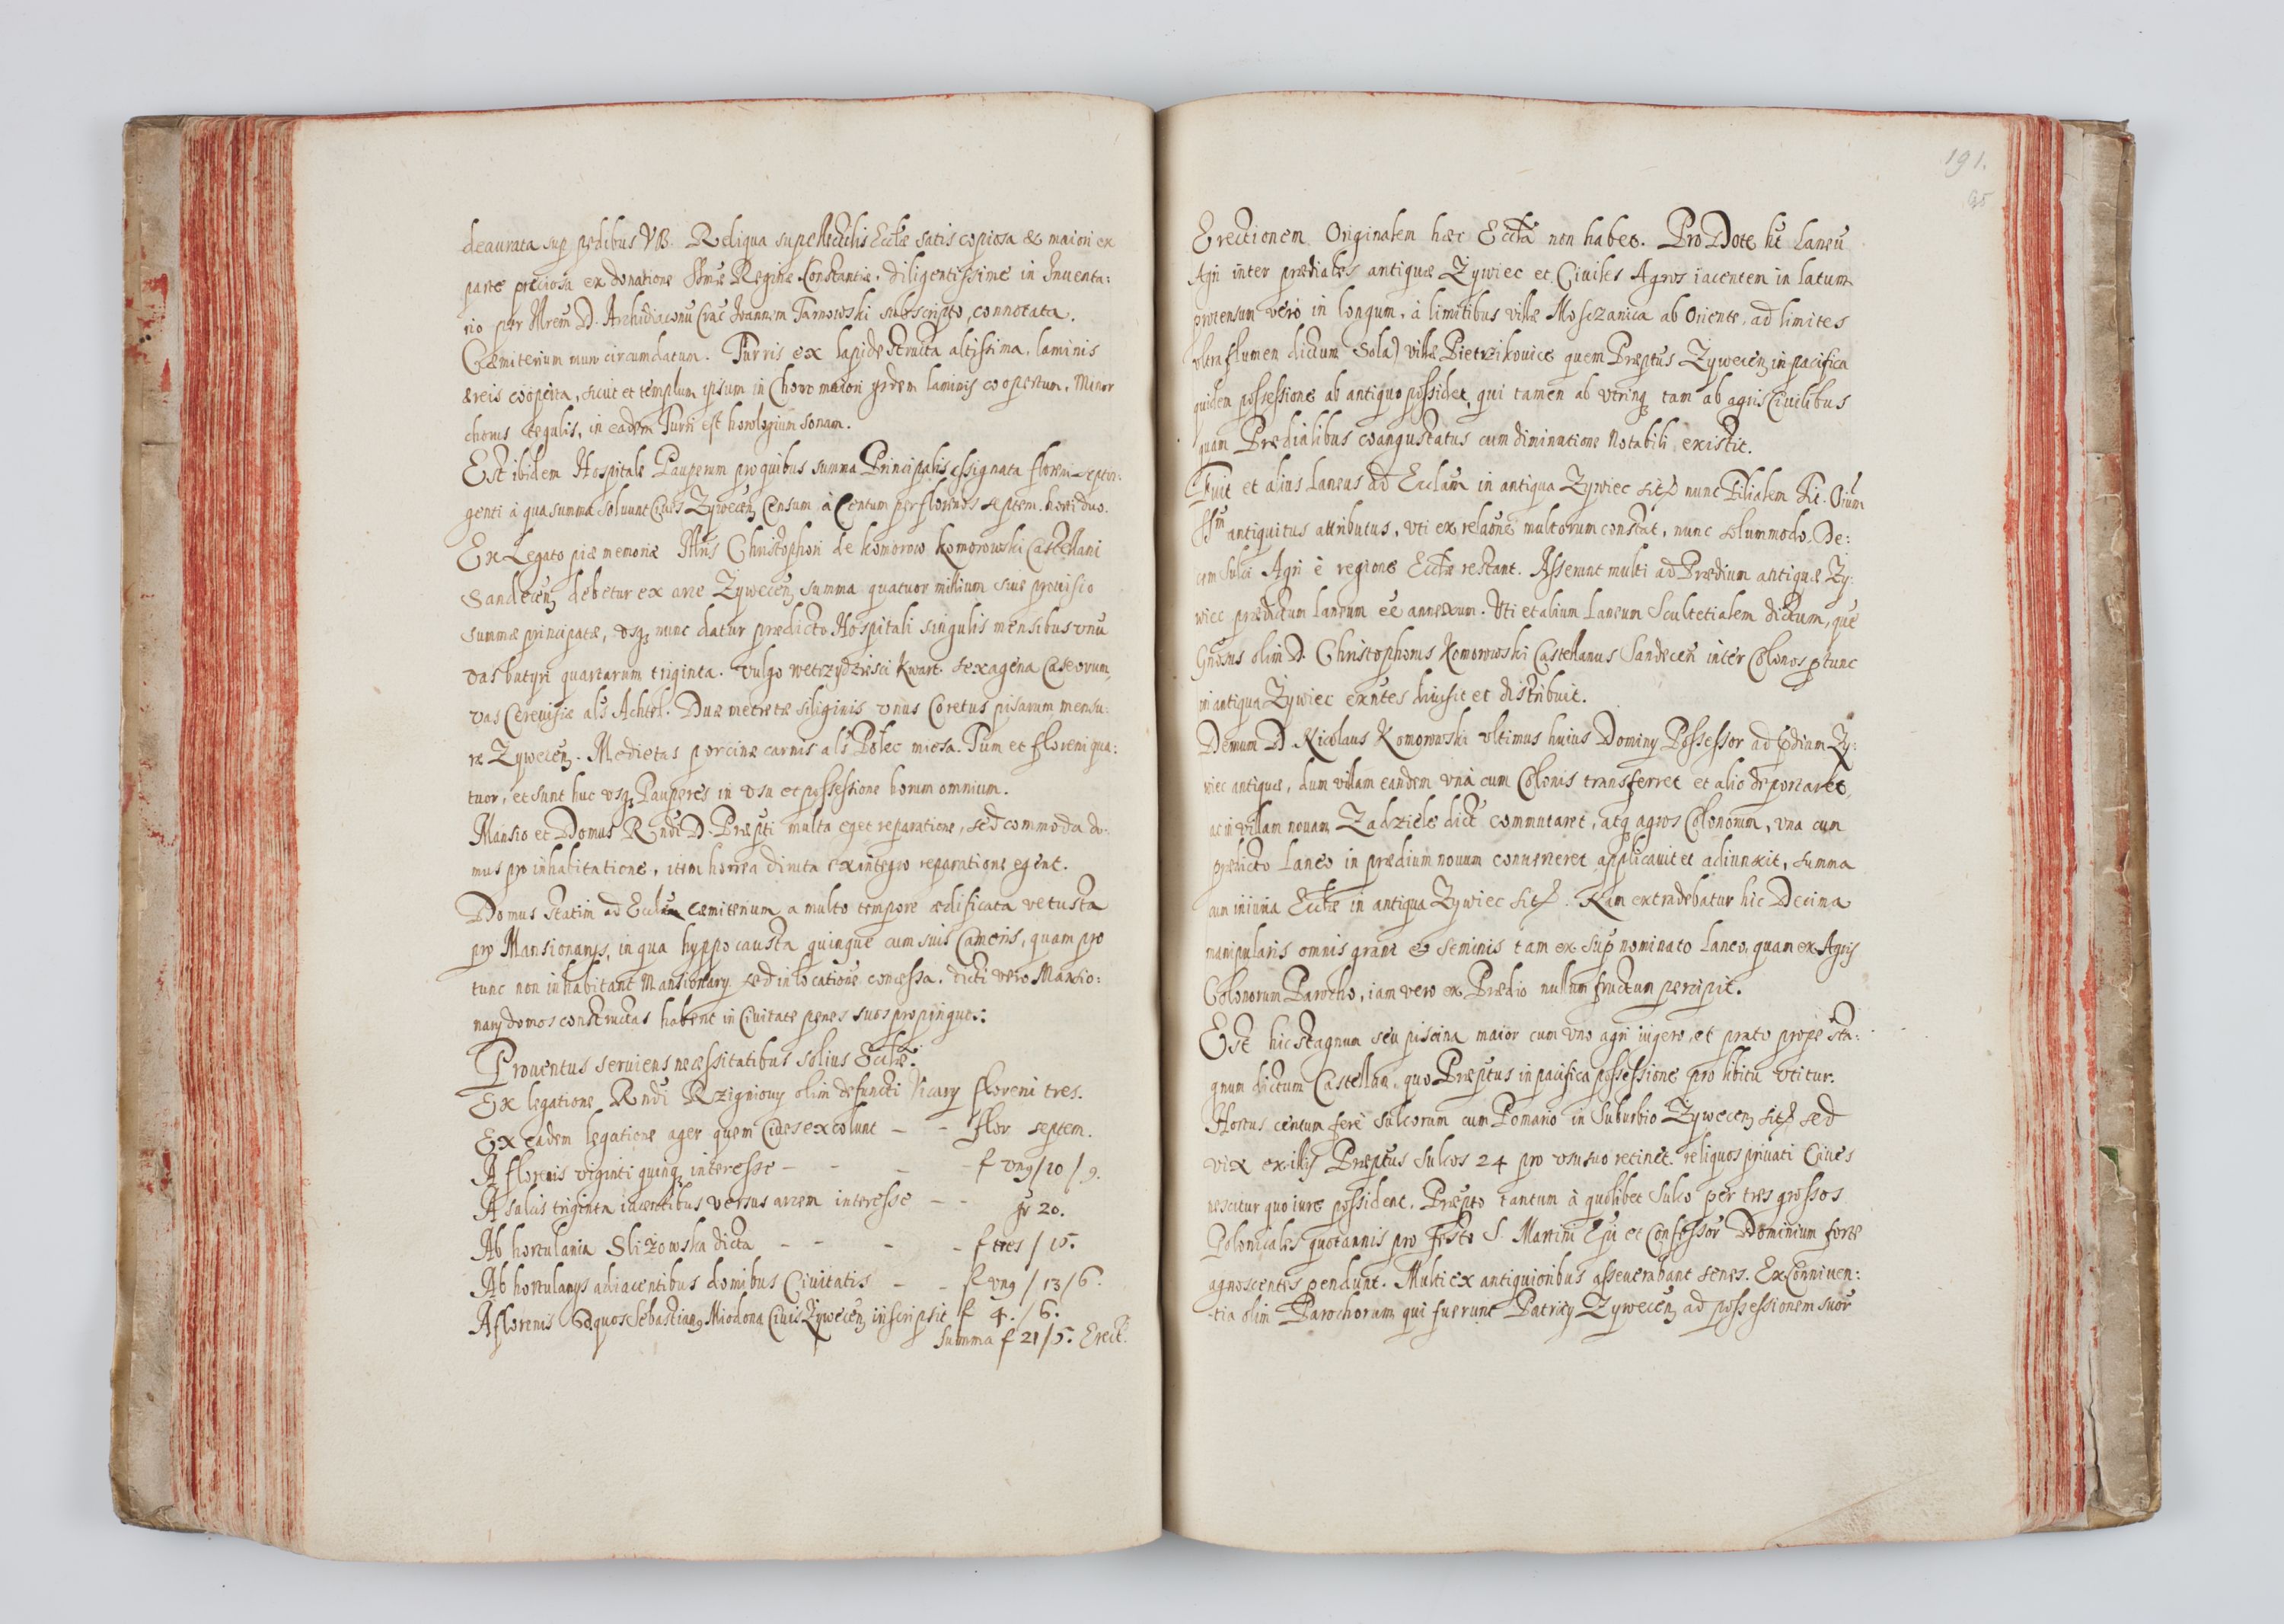 deaurata sup pedibus VB. Reliqua supellectilis Ecclæ satis copiosa & maiori ex
parte preciosa ex donatione Sermæ Reginæ Constantiæ. diligentissime in Inventa:
rio per Illrem D. Archidiaconu Crac Joannem Tarnowski subscripto, connotata.
Cæmiterium muro circumdatum. Turris ex lapide structa altissima, laminis
æreis cooperta, sicut et templum ipsum in Choro maiori ysdem laminis coopertum, Minor
chorus tegulis, in eadem Turri est horologium sonans.
Est ibidem Hospitale Pauperum pro quibus summa Principalis assignata floreni septin:
genti à qua summa soluunt Cives Zywecen Censum à Centum per florenos septem. hori duo.
Ex Legato piæ memoriæ Illris Christophori de Komorow Komorowski Castellani
Sandecen debetur ex arce Zywecen summa quatuor millium siue prouisio
summæ principalæ, usq nunc datur prædicto Hospitali singulis mensibus vnu
vas butyri quartarum triginta. vulgo wetrzydziesci kwart. sexagena Caseorum,
vas Cereuisiæ als Achtel. Duæ metretæ siliginis vnus Coretus pisarum mensu:
ræ Zywecen. Medietas porcinæ carnis als Polec miesa. Tum et floreni qua:
tuor, et sunt huc vsq Pauperes in vsu et possessione horum omnium.
Mansio et Domus Rndi D. Præpti multa eget reparatione, sed commoda do:
mus pro inhabitatione, item horrea diruta ex integro reparatione egent.
Domus statim ad Ecclæ cæmiterium a multo tempore ædificata vetusta
pro Mansionarys, in qua hyppocausta quinque cum suis Cameris, quam pro
tunc non inhabitant Mansionary sed in locatione concessa. dicti vero Mansio:
nary domos constructas habent in Ciuitate penes suos propinquos:
Prouentus seruiens necessitatibus solius Ecclæ.
Ex legatione Rndi Rzigniony olim defuncti Vicary floreni tres.
Ex eadem legatione ager quem Ciues excolunt - - flor septem.
A florenis viginti quinq interesse - - - - f vng / 20 / 9.
A sulcis triginta iacentibus versus arcem interesse - - gr 20.
Ab hortulania Slizowska dicta - - - - f tres / 15.
Ab hortulanys adiacentibus domibus Ciuitatis - - f vng / 13 / 6.
A florenis 60 quos Sebastiang Miodona Ciuis Zywecen inscripsit f 4. / 6.
Summa f 21 / 5. Erect.
191.
95
Erectionem Originalem hæc Eccla non habet. Pro Dote ht Laneu
Agri inter prædiales antiquæ Zywiec et Ciuiles Agros iacentem in latum
protensum vero in longum, à limitibus villæ Mosczanica ab Oriente, ad limites
vltra flumen dictum Sola) villæ Pietrzikovice quem Præptus Zywecen in pacifica
quidem possessione ab antiquo possidet, qui tamen ab vtrinq tam ab agris Ciuilibus
quam Prædialibus coangustatus cum diminutione Notabili existit.
Fuit et alius Laneus ad Ecclam in antiqua Zywiec sit nunc Filialem Tit. Oium
SSm antiquitus attributus, vti ex relaone multorum constat, nunc solummodo De:
cem sulci Agri è regione Ecclæ restant. Asserunt multi ad Prædium antiquæ Zy:
wiec prædictum Laneum eê annexum. Vti et alium Laneum Scultetialem dictum, quē
Gnosus olim D. Christophorus Komorowski Castellanus Sandecen inter Colonos ptunc
in antiqua Zywiec exntes diuisit et distribuit.
Demum D. Nicolaus Komorowski vltimus huius Dominy Possessor ad pdium Zy:
wiec antiquæ, dum villam eandem vnà cum Colonis transferret et alio deportaret,
ac in villam nouam Zadziele dict commutaret, atq agros Colonorum, vna cum
prædicto Laneo in prædium nouum conuerteret applicauit et adiunxit, summa
cum iniuria Ecclæ in antiqua Zywiec sit. Nam extradebatur hic Decima
manipularis omnis grani & seminis tam ex sup nominato Laneo, quam ex Agris
Colonorum Parocho, iam vero ex Prædio nullum fructum percipit.
Est hic stagnum seu piscina maior cum vno agri iugero, et prato prope sta:
gnum dictum Castellan, quo Præptus in pacifica possessione pro libitu vtitur.
Hortus centum fere sulcorum cum Pomario in Suburbio Zywecen sit sed
vix ex illis Præptus sulcos 24 pro vsu suo retinet. reliquos priuati Ciues
nescitur quo iure possident. Præpto tantum à quolibet sulco per tres grossos
Polonicales quotannis pro festo S. Martini Epi et Confessor Dominium forte
agnoscentes pendunt. Multi ex antiquioribus asseuerabant senes. Ex Conniuen:
-tia olim Parochorum qui fuerunt Patricy Zywecen ad possessionem suor